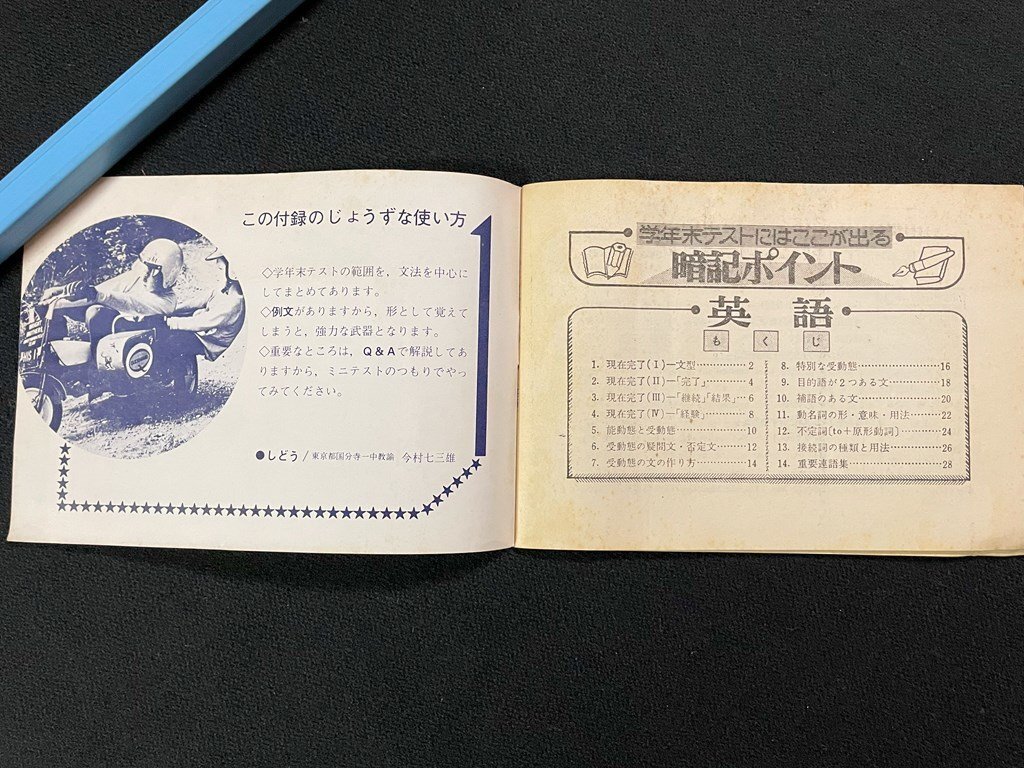 この付録のじょうずな使い方
◇学年末テストの範囲を，文法を中心に
してまとめてあります。
◇例文がありますから，形として覚えて
しまうと，強力な武器となります。
◇重要なところは，Q&Aで解説してあ
りますから，ミニテストのつもりでやっ
てみてください。
●しどう/東京都国分寺一中教諭 今村七三雄
学年末テストにはここが出る
暗記ポイント
英語
もくじ
1. 現在完了(I)—文型…………2
2. 現在完了(II)—「完了」…………4
3. 現在完了(III)—「継続」「結果」…6
4. 現在完了(IV)—「経験」…………8
5. 能動態と受動態…………10
6. 受動態の疑問文・否定文…………12
7. 受動態の文の作り方…………14
8. 特別な受動態…………16
9. 目的語が2つある文…………18
10. 補語のある文…………20
11. 動名詞の形・意味・用法…………22
12. 不定詞[to+原形動詞]…………24
13. 接続詞の種類と用法…………26
14. 重要連語集…………28